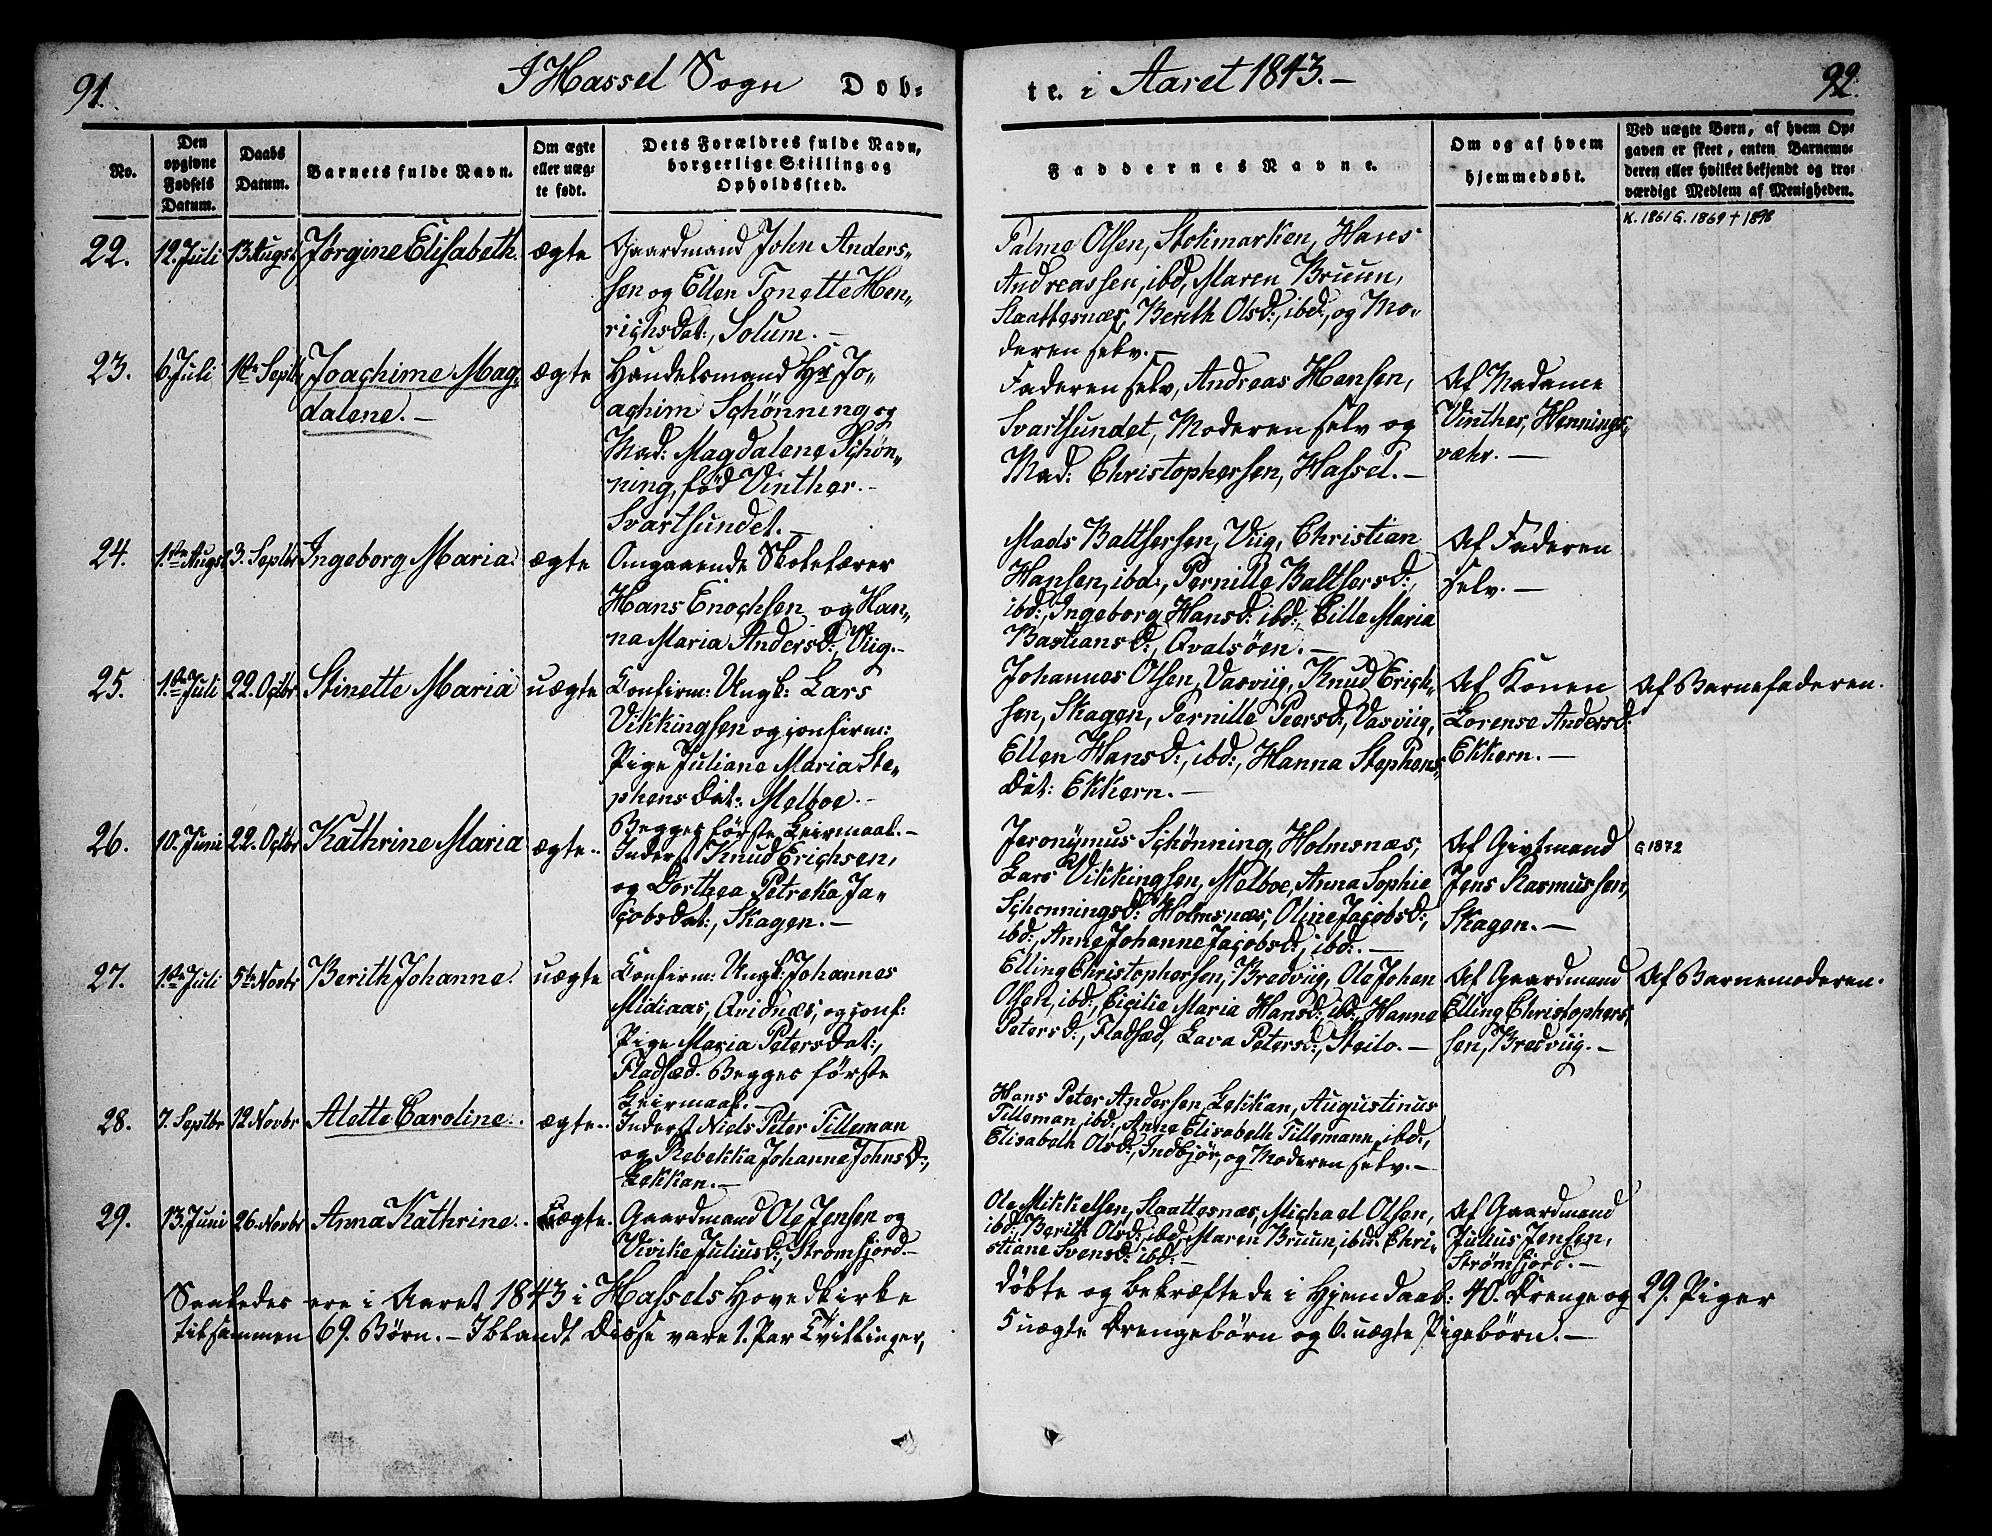 91.
I Hassel Sogn Døb-
No.
Den opgivne Fødsels Datum.
Daabs Datum.
Barnets fulde Navn.
Om ægte eller uæg-te født.
Dets Forældres fulde Navn, borgerlige Stilling og Opholdssted.
22. 12. Juli 13 Augst Jørgine Elisabeth. ægte Gaardmand John Anders-
sen og Ellen Tonette Hen-
richsdat:, Solum. –
23. 6. Juli 1ste Septbr Joachime Mag- ægte Handelsmand Hr. Jo-
dalene. – achim Schönning og
Mad: Magdalene Schön-
ning, född Vinther. –
Svartsundet. –
24. 1ste Augst 3. Septbr Ingeborg Maria. ægte Omgaaende Skolelærer
Hans Enochsen og Han-
na Maria Andersd:, Viig. –
25. 1ste Juli 22. Octbr Stinette Maria uægte Confirm: Ungk: Lars
Vikkingsen og confirm:
Pige Juliane Maria Ste-
phensdat:, Melboe. –
Begges første Leirmaal. –
26. 10. Juni 22. Octbr Kathrine Maria ægte.. Inderst Knud Erichsen,
og Dorthea Petreka Ja-
cobsdat:, Skagen. –
27. 1ste Juli 5te Novbr Berith Johanne. uægte Confirm: Ungk: Johannes
Midiaas, Qvidnæs, og conf:
Pige Maria Petersdat:,
Fladsæd. Begges første
Leirmaal. –
28. 7. Septbr 12 Novbr Alette Caroline. . ægte.. Inderst Niels Peter Tilleman
og Rebekka Johanne Johnsd:,
Lekkan. –
29. 13. Juni 26. Novbr Anna Kathrine. . Uægte. Gaardmand Ole Jensen og
Vivike Juliusd:, Strømfjord. –
Saaledes ere i Aaret 1843 i Hassels Hovedkirke
tilsammen 69. Børn. – Iblandt Disse vare 1. Par Tvillinger,
te. i Aaret 1843. –
92.
Faddernes Navne.
Om og af hvem hjemmedøbt.
Ved uægte Børn, af hvem Op-
gaven er skeet, enten Barnemo-
deren eller hvilket bekjendt og tro-
værdigt Medlem af Menigheden.
K. 1861 G. 1869 + 1898
Palme Olsen, Stokmarken, Hans
Andreassen, ibd, Maren Bruun,
Slaattesnæs, Berith Olsd:, ibd:, og Mo-
deren selv. –
Faderen selv, Andreas Hansen, Af Madame
Svartsundet, Moderen selv og Vinther, Hennings-
Mad: Christophersen, Hassel. – væhr. –
Mads Baltsersen, Viig, Christian Af Faderen
Hansen, ibd:, Pernille Baltsersd:, selv. –
ibd:, Ingeborg Hansd: ibd:, Cille Maria
Bastiansd:, Qvalsöen. –
Johannes Olsen, Vasviig, Knud Erich- Af Konen Af Barnefaderen.
sen, Skagen, Pernille Peersd:, Vasviig, Lorense Andersd:
Ellen Hansd:, ibd:, Hanna Stephens- Ekkern. –
dat: Ekkern. –
Jeronÿmus Schönning, Holmsnæs, Af Givtmand G 1872
Lars Vikkingsen, Melboe, Anna Sophie Jens Rasmussen,
Schønningsd: Holmsnæs, Oline Jacobsd:, Skagen. –
ibd:, Anne Johanne Jacobsd:, ibd:. –
Elling Christophersen, Bredviig, Ole Johan Af Gaardmand Af Barnemoderen.
Olsen, ibd:, Cicilie Maria Hansd:, ibd:, Hanne Elling Christophers-
Petersd:, Fladsæd, Lava Petersd:, Steilo. – sen, Bredviig. –
Hans Peter Andersen, Lekkan, Augustinus
Tilleman, ibd:, Anne Elisabeth Tillemann, ibd:,
Elisabeth Olsd:, Indbjør, og Moderen selv. –
Ole Mikkelsen, Slaattesnæs, Michael Olsen, Af Gaardmand
ibd:, Berith Olsd:, ibd:, Maren Bruun, ibd:, Chri- Julius Jensen,
stiane Svensd: ibd: – Strømfjord. –
døbte og bekræftede i Hjemdaab: 40. Drenge og 29. Piger
5 uægte Drengebørn og 6. uægte Pigebørn. –